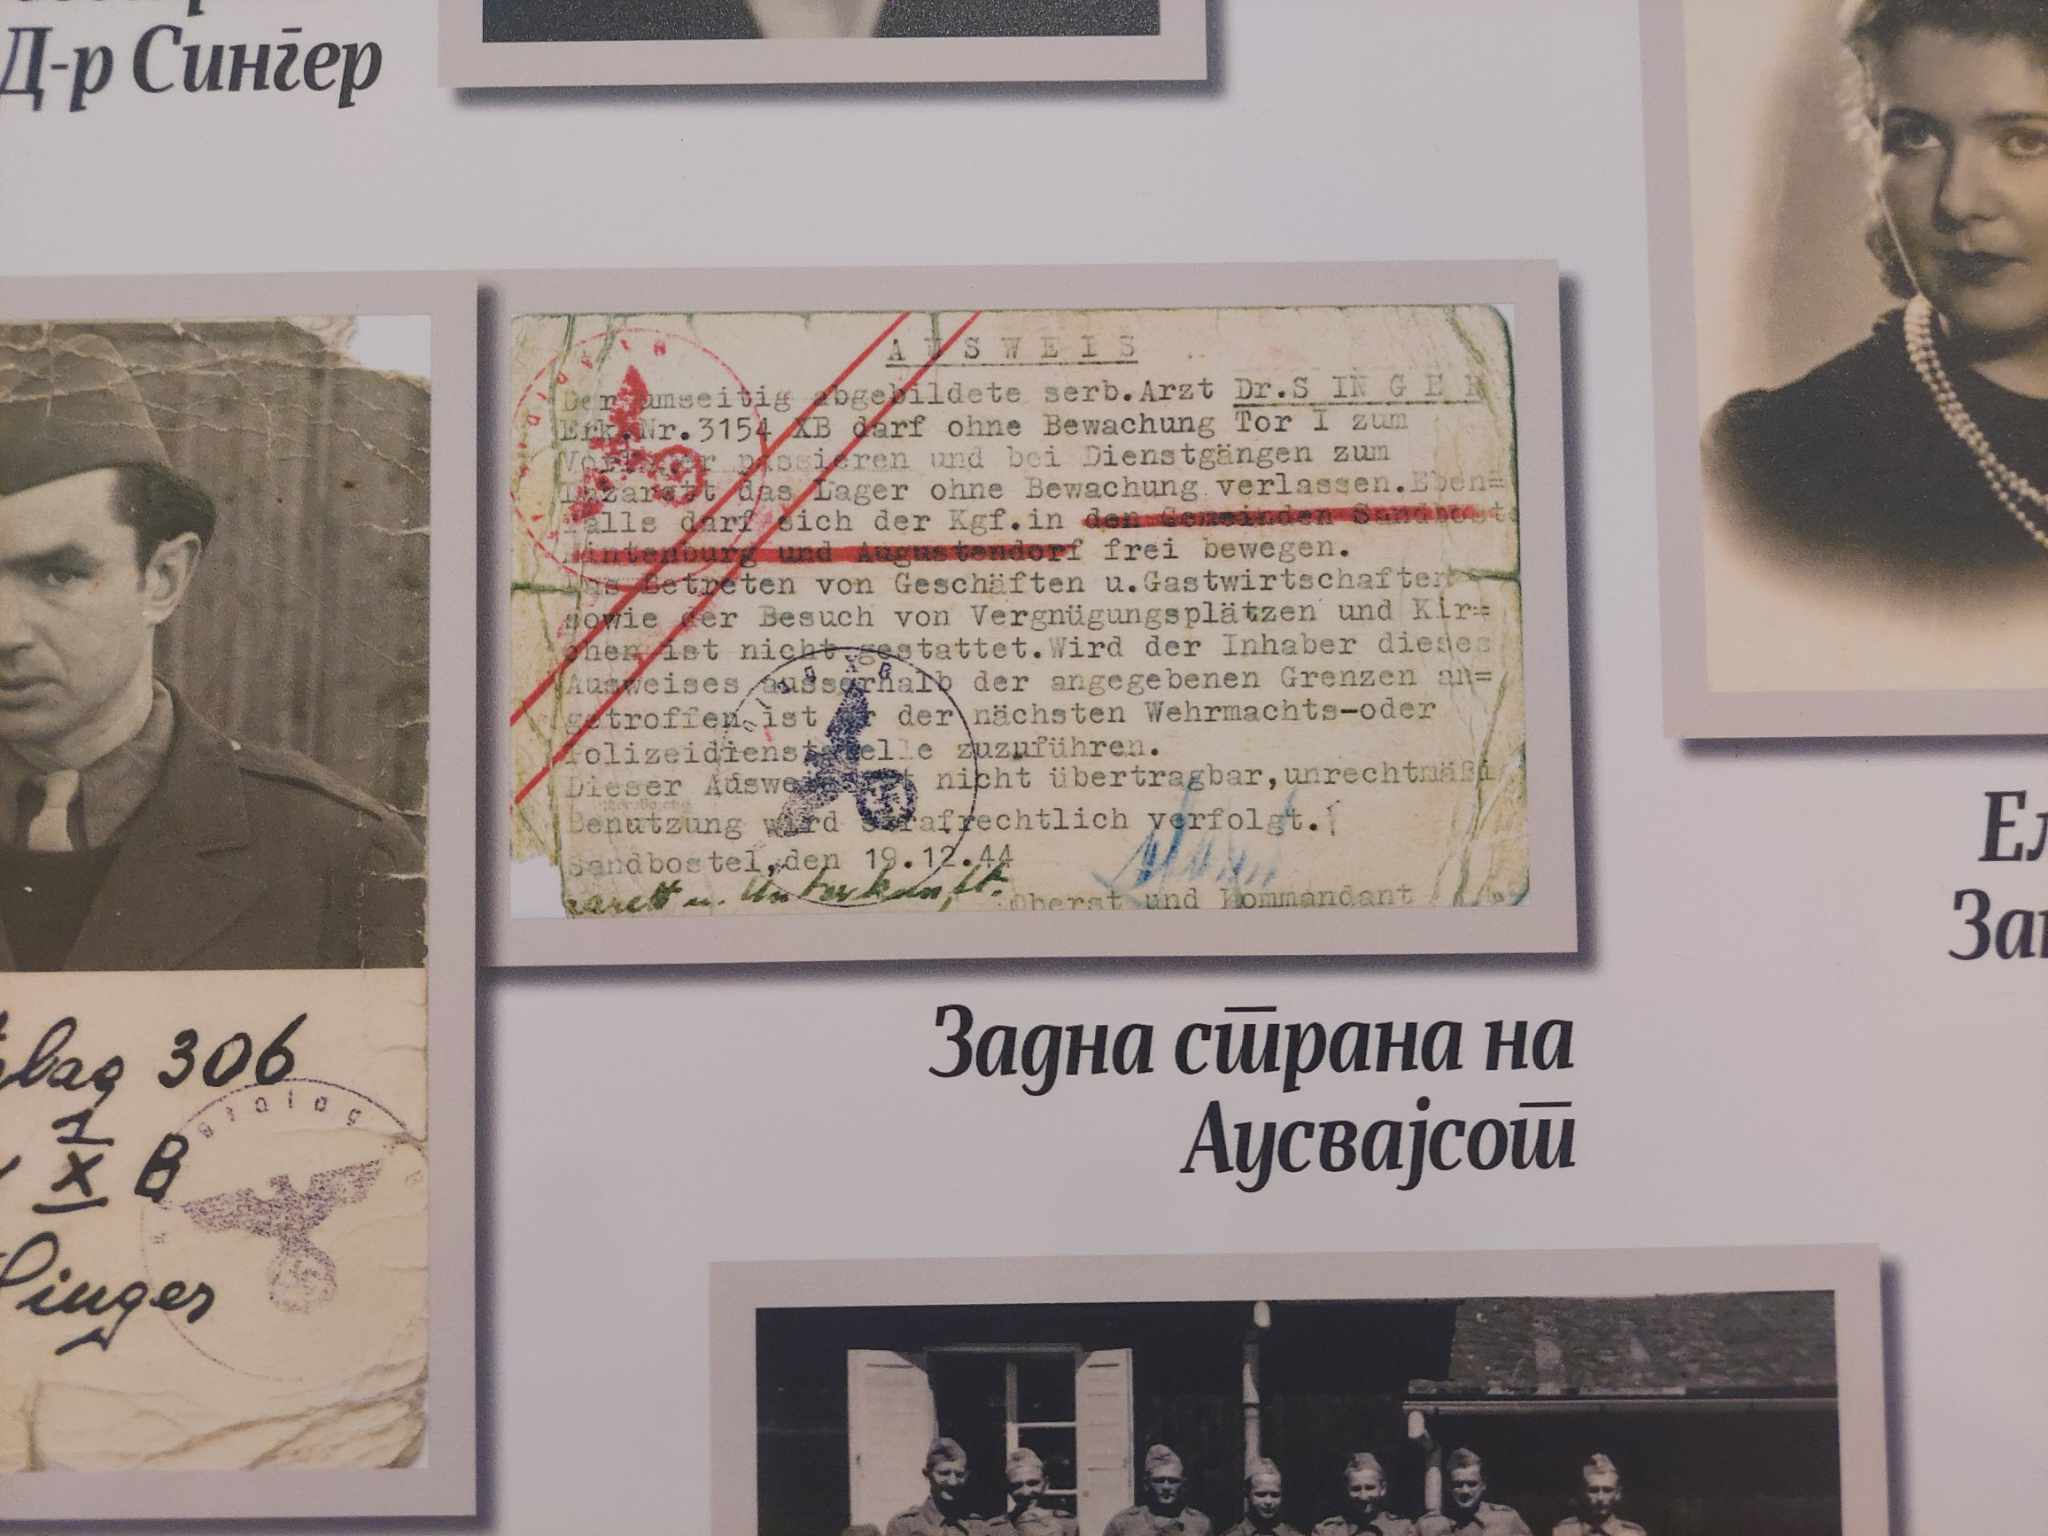 Д-р Сингер
AUSWEIS
Der umseitig abgebildete serb.Arzt Dr.SINGER
Erk.Nr.3154 XB darf ohne Bewachung Tor I zum
Vorlager passieren und bei Dienstgängen zum
Lazarett das Lager ohne Bewachung verlassen.Eben=
falls darf sich der Kgf.in den Gemeinden Sandboste
und Augustendorf frei bewegen.
Das Betreten von Geschäften u.Gastwirtschaften
sowie der Besuch von Vergnügungsplätzen und Kir=
chen ist nicht gestattet.Wird der Inhaber dieses
Ausweises ausserhalb der angegebenen Grenzen an=
getroffen,ist er der nächsten Wehrmachts-oder
Polizeidienststelle zuzuführen.
Dieser Ausweis ist nicht übertragbar,unrechtmäßi
Benutzung wird strafrechtlich verfolgt.
Sandbostel,den 19.12.44
u. Unterkunft.
Oberst und Kommandant
Задна страна на
Аусвајсот
306
X B
Singer
Ел
Заг